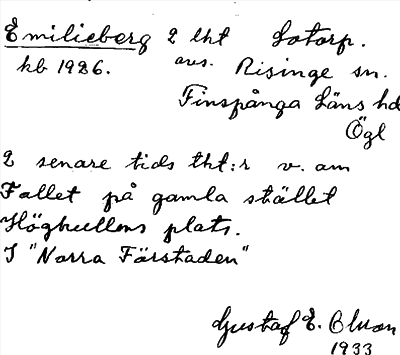 Emilieberg 2 lht Lotorp.
kb 1926. avs. Risinge sn.
Finspånga läns hd
Ögl
2 senare tids lht:r v. om
Fallet på gamla stället
Höghullens plats.
I "Norra Förstaden"
Gustaf E. Olson
1933